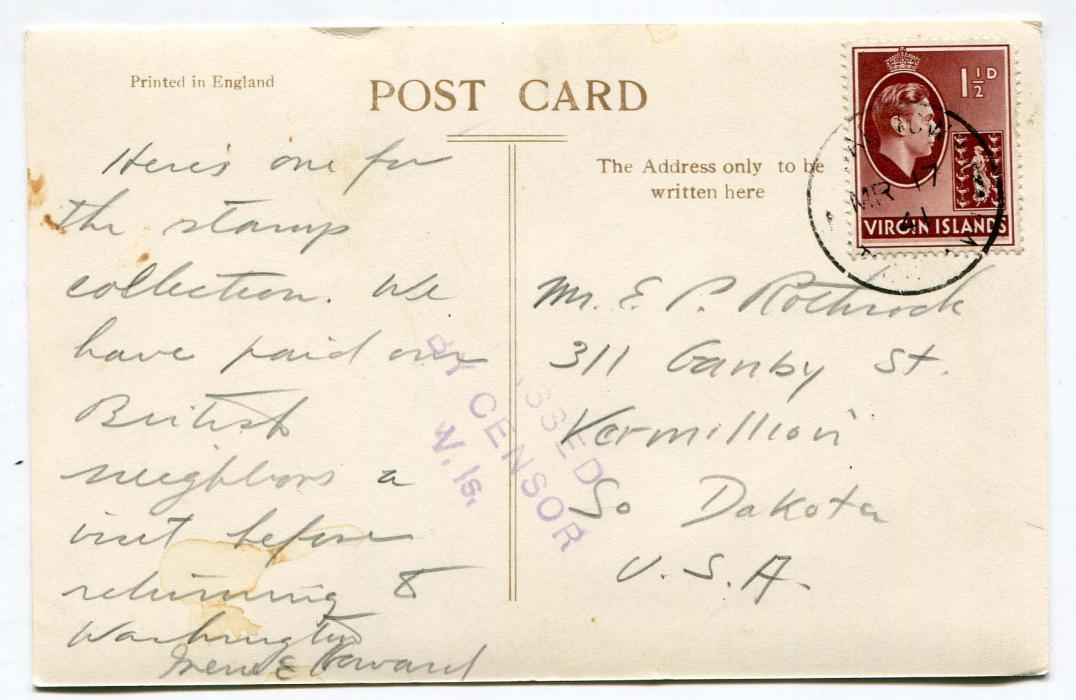 Printed in England
POST CARD
The Address only to be
written here
1½D
VIRGIN ISLANDS
MR 17
41
Here's one for
the stamp
collection. We
have paid our
British
neighbors a
visit before
returning to
Washington
Irene E Howard
BY CENSOR
V. Is.
Mr. E. P. Rothrock
311 Canby St.
Vermillion
So Dakota
U.S.A.